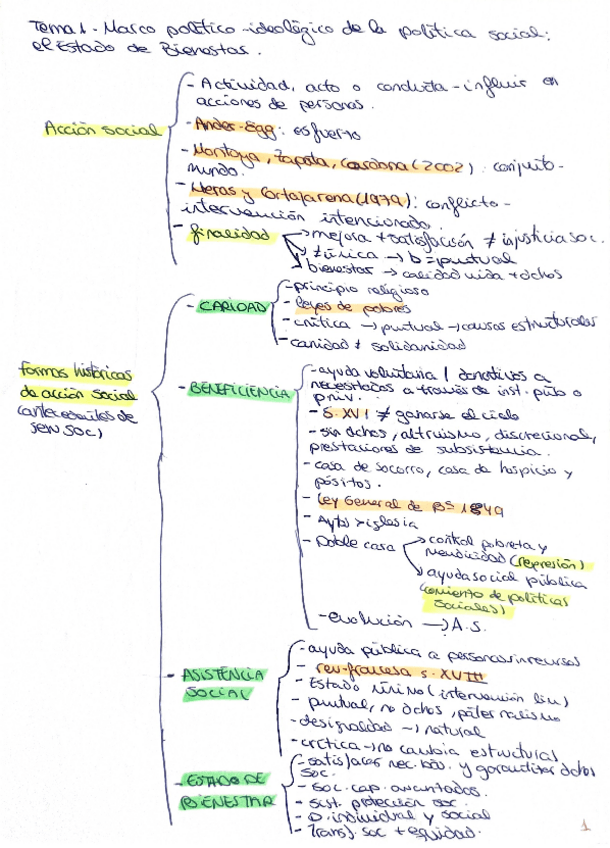 Tema 1 - Marco político-ideológico de la política social:
el Estado de Bienestar.
Acción social
- Actividad, acto o conducta - influir en
acciones de personas.
- Ander-Egg: esfuerzo
- Montoya, Zapata, Cardona (2002): conjunto -
mundo.
- Heras y Cortajarena (1979): conflicto -
intervención intencionada.
- finalidad
→ mejora + satisfacción ≠ injusticia soc.
→ → b = puntual
→ bienestar → calidad vida + dchos
formas históricas
de acción social
(antecedentes de
serv soc)
- CARIDAD
- principio religioso
- leyes de pobres
- crítica → puntual → causas estructurales
- caridad ≠ solidaridad
- BENEFICIENCIA
- ayuda voluntaria / donativos a
necesitados a través de inst. púb o
priv.
- S. XVI ≠ ganarse el cielo
- sin dchos, altruismo, discrecional,
prestaciones de subsistencia.
- casa de socorro, casa de hospicio y
pósitos.
- Ley General de BS 1849
- Ayto > iglesia
- Doble cara
→ control pobreza y
mendicidad (represión)
→ ayuda social pública
(comienzo de políticas
sociales)
- evolución → A.S.
- ASISTENCIA
SOCIAL
- ayuda pública a personas sin recursos
- rev. francesa s. XVIII
- Estado mínimo (intervención lim)
- puntual, no dchos, paternalismo
- desigualdad → natural
- crítica → no cambia estructural
- ESTADO DE
BIENESTAR
- satisfacer nec. bás. y garantizar dchos
soc.
- soc. cap. avanzadas.
- sist. protección soc.
- D. individual y social
- Transf. soc + equidad.
1